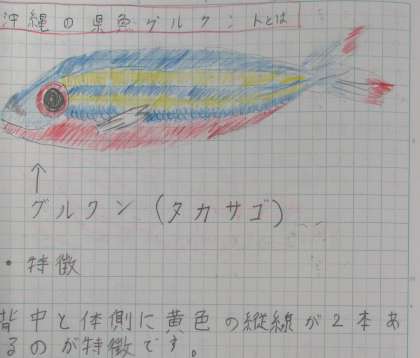 沖縄の県魚グルクントとは
↑
グルクン(タカサゴ)
・特徴
背中と体側に黄色の縦線が2本あ
るのが特徴です。